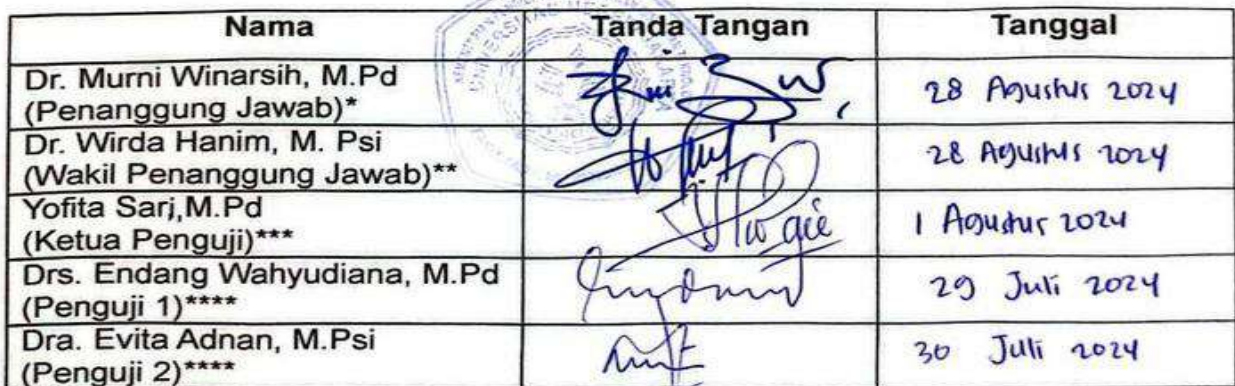 Nama Tanda Tangan Tanggal
Dr. Murni Winarsih, M.Pd
(Penanggung Jawab)*
28 Agustus 2024
Dr. Wirda Hanim, M. Psi
(Wakil Penanggung Jawab)**
28 Agustus 2024
Yofita Sari,M.Pd
(Ketua Penguji)***
1 Agustus 2024
Drs. Endang Wahyudiana, M.Pd
(Penguji 1)****
29 Juli 2024
Dra. Evita Adnan, M.Psi
(Penguji 2)****
30 Juli 2024